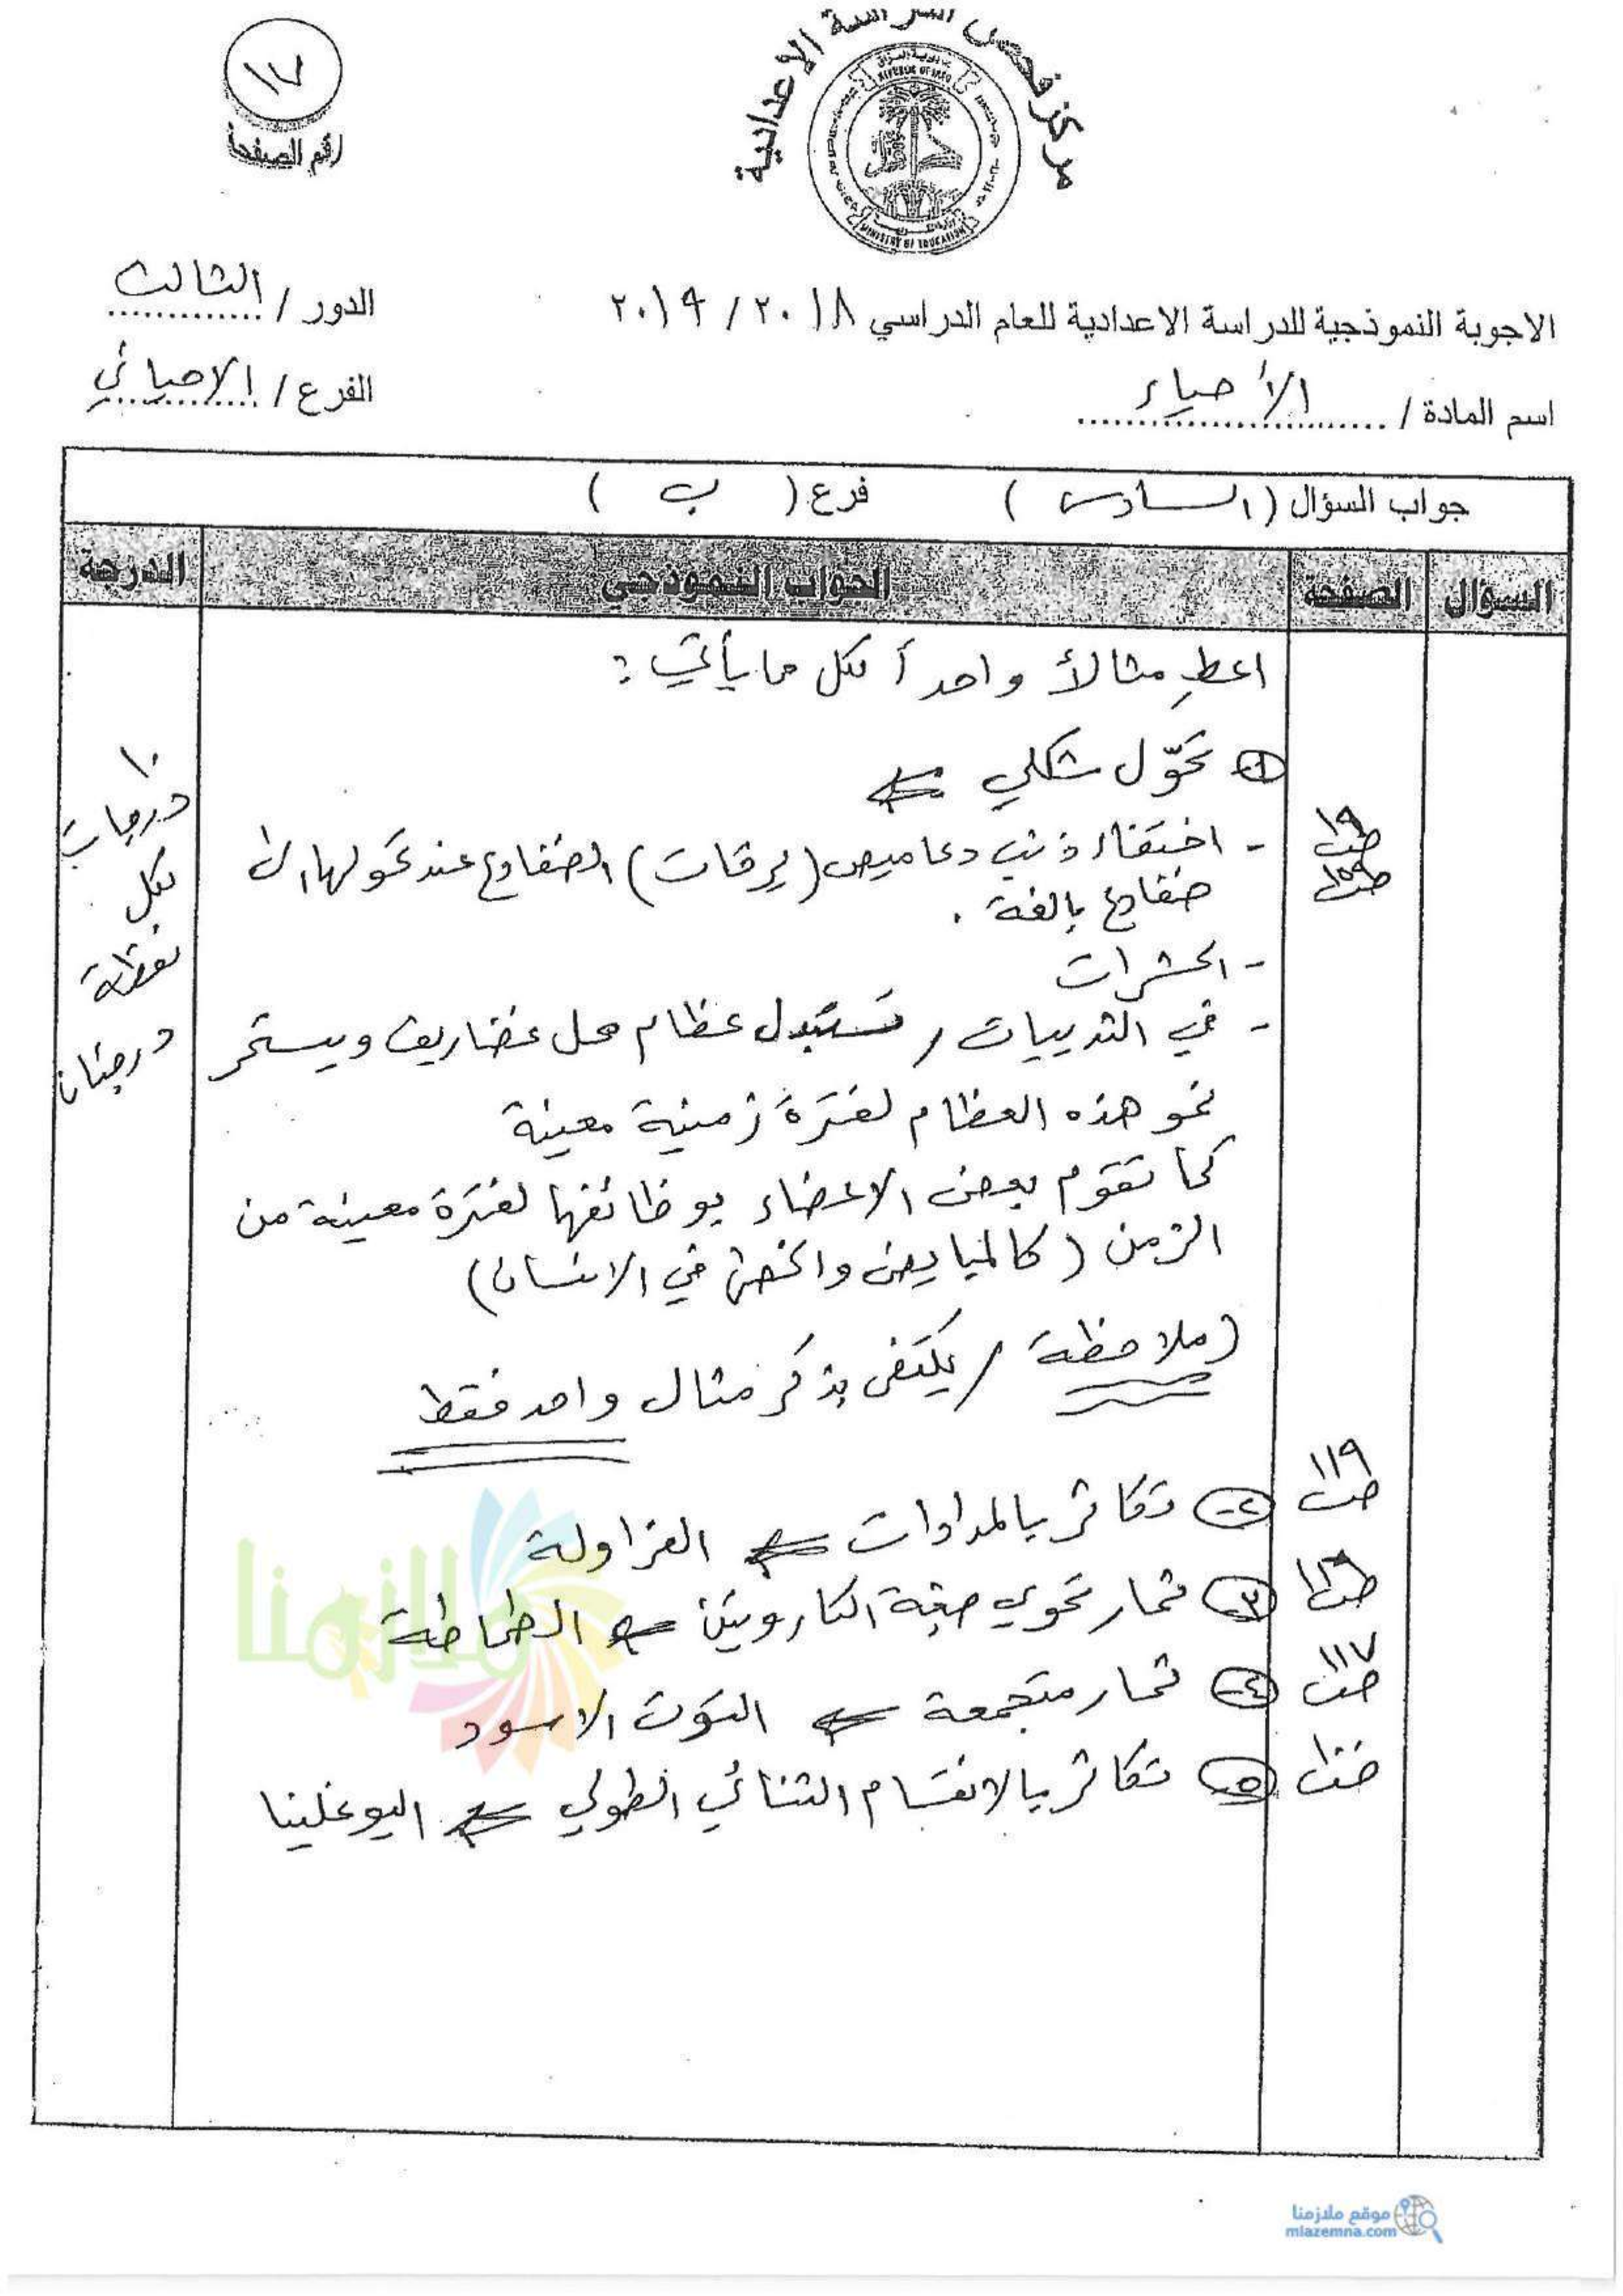 مركز فحص الدراسة الاعدادية
١٧
رقم الصفحة
جمهورية العراق
REPUBLIC OF IRAQ
MINISTRY OF EDUCATION
الاجوبة النموذجية للدراسة الاعدادية للعام الدراسي ٢٠١٨ / ٢٠١٩
الدور / الثالث
اسم المادة / الأحياء
الفرع / الاحيائي
جواب السؤال ( السادس ) فرع ( ب )
السؤال الصفحة الجواب النموذجي الدرجة
اعطِ مثالاً واحداً لكل ما يأتي :
١- تحوّل شكلي
- اختفاء ذنب دعاميص (يرقات) الضفادع عند تحولها الى
ضفادع بالغة .
- الحشرات
- في الثدييات / تستبدل عظام محل غضاريف ويستمر
نمو هذه العظام لفترة زمنية معينة
كما تقوم بعض الاعضاء بوظائفها لفترة معينة من
الزمن ( كالمبايض والخصى في الانسان )
( ملاحظة / يكتفى بذكر مثال واحد فقط
ص١٩
ص١٥٩
١٠
درجات
لكل
نقطة
درجتان
ص١١٩ ٢- تكاثر بالمدادات الفراولة
٣- ثمار تحوي صبغة الكاروتين الطماطة
ص١١٧ ٤- ثمار متجمعة التوت الاسود
٥- تكاثر بالانقسام الثنائي الطولي اليوغلينا
ملازمنا
موقع ملازمنا
mlazemna.com